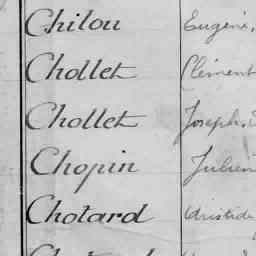 Chilou Eugène,
Chollet Clément
Chollet Joseph,
Chopin Julien
Chotard Aristide